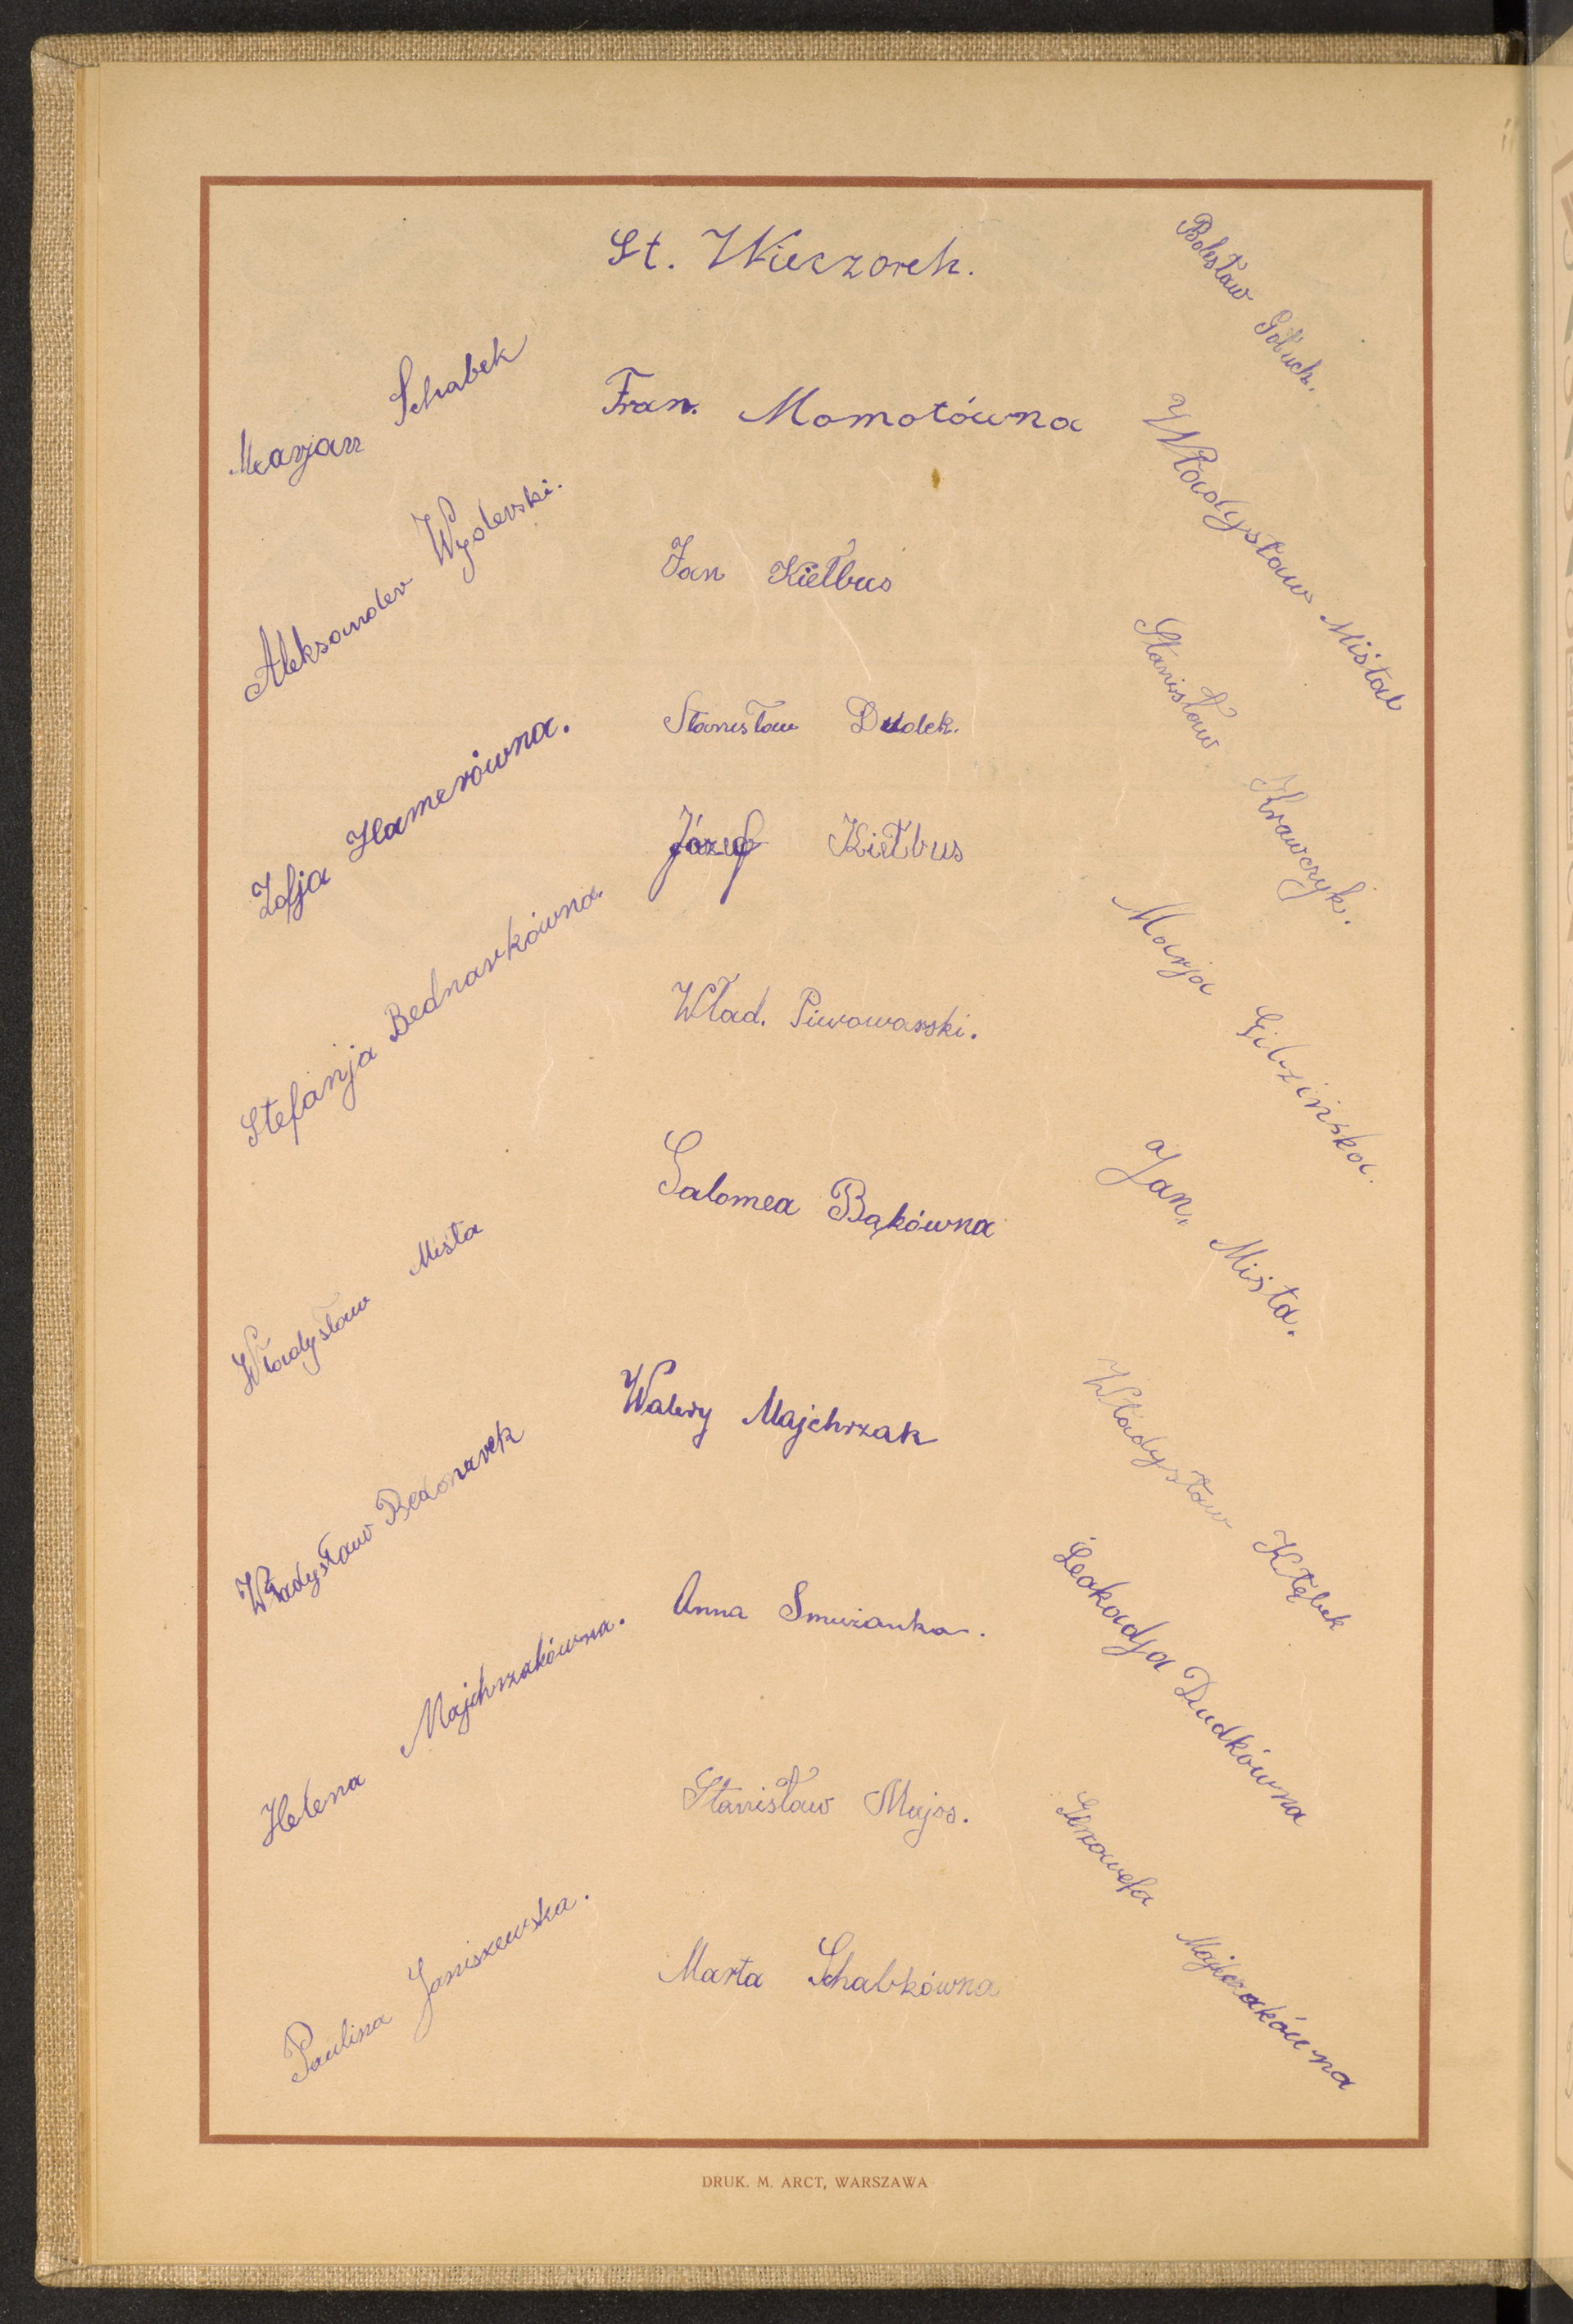 St. Wieczorek.
Marjan Schabek
Fran. Momotówna
Bolesław Gołuch.
Aleksander Wyderski.
Jan Kiełbus
Władysław Miśtal
Zofja Hamerówna.
Stanisław Dudek.
Stanisław Krawczyk.
Józef Kiełbus
Stefanja Bednarkówna.
Wład. Piwowarski.
Marja Gilzińska.
Salomea Bąkówna
Jan Miśta.
Władysław Miśta
Walery Majchrzak
Władysław Kłębek
Władysław Bednarek
Anna Smużanka.
Leokadja Dudkówna
Helena Majchrzakówna.
Stanisław Majos.
Genowefa Majchrzakówna
Paulina Janiszewska.
Marta Schabkówna
DRUK. M. ARCT, WARSZAWA